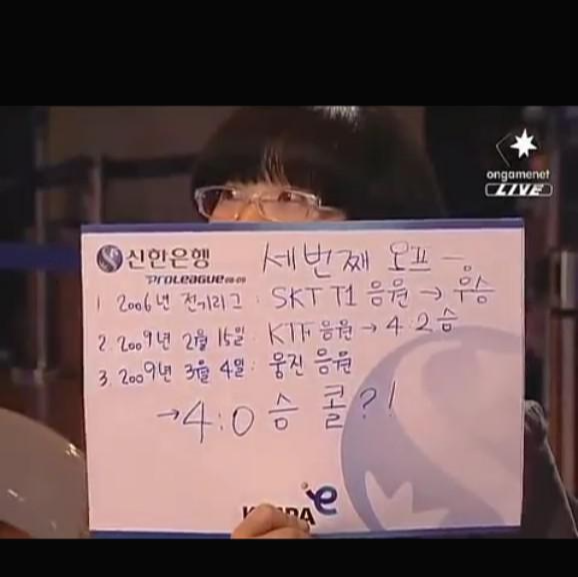 ongamenet
LIVE
신한은행
PROLEAGUE 08-09
세번째 오프 -.
1 2006년 전기리그 : SKT T1 응원 → 우승
2. 2009년 2월 15일: KTF 응원 → 4:2승
3. 2009년 3월 4일: 웅진 응원
→ 4:0 승 콜?!
e